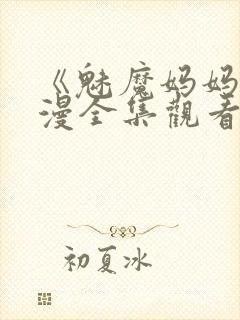 《魅魔妈妈
漫全集觀看
初夏冰